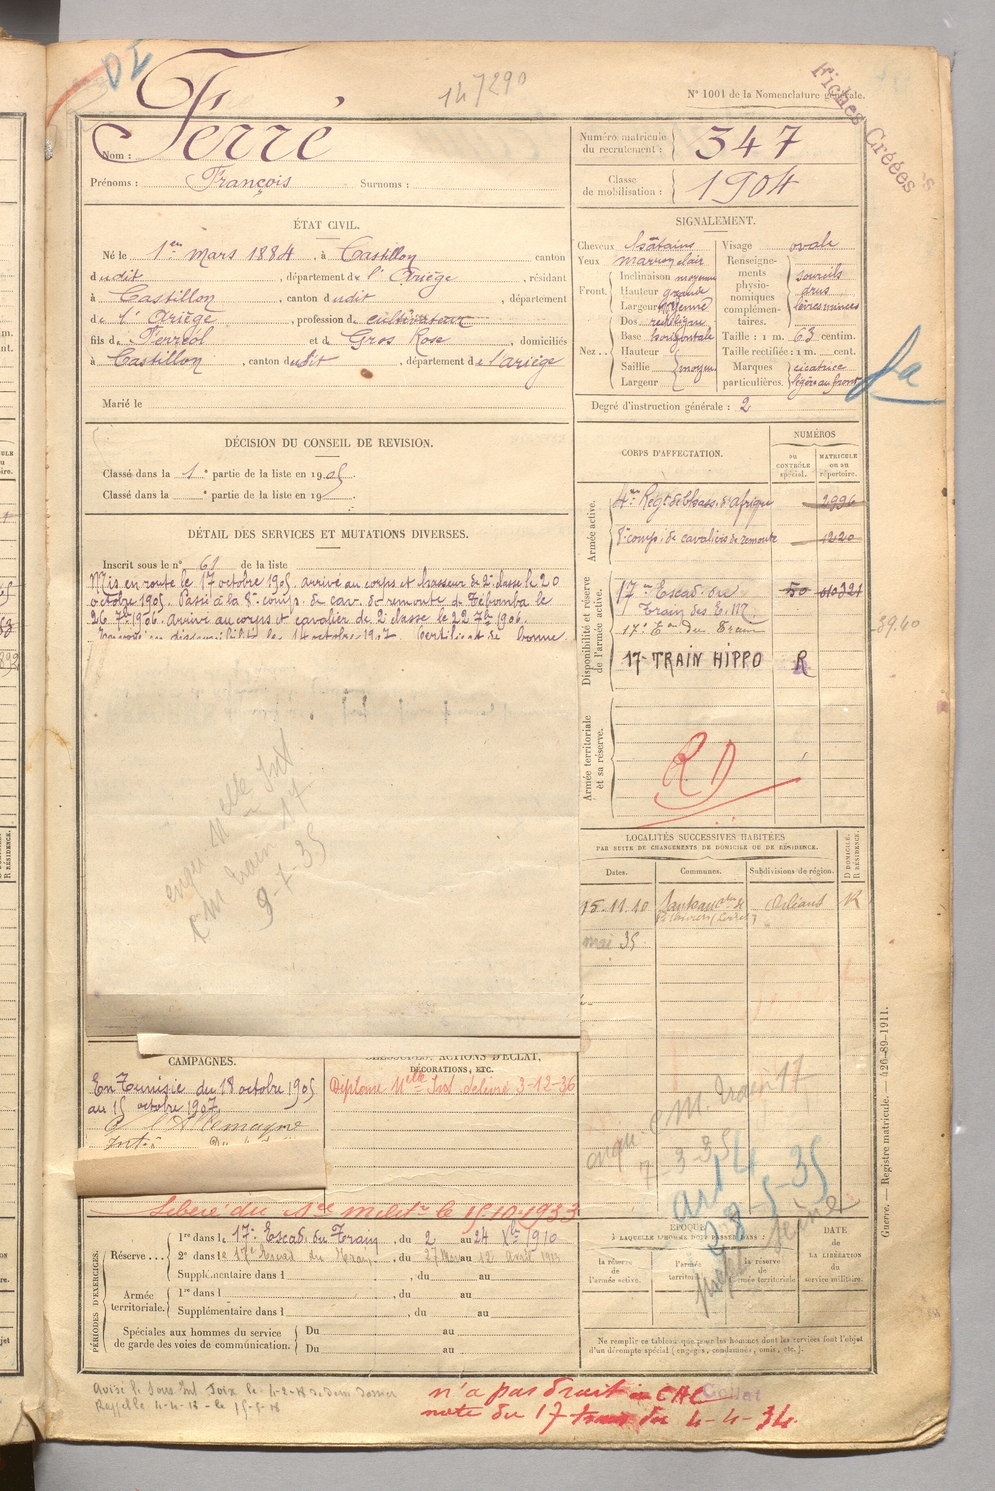 147290
N° 1001 de la Nomenclature générale.
Fiches Créées
Nom : Ferré
Prénoms : François Surnoms :
Numéro matricule du recrutement : 347
Classe de mobilisation : 1904
ÉTAT CIVIL.
Né le 1er mars 1884, à Castillon canton
dudit, département de l'Ariège, résidant
à Castillon, canton dudit, département
de l'Ariège, profession de cultivateur
fils de Ferréol et de Gros Rose, domiciliés
à Castillon, canton dudit, département de l'ariège
Marié le
SIGNALEMENT.
Cheveux châtains
Yeux marron clair
Front. Inclinaison moyenne
Hauteur grande
Largeur moyenne
Nez... Dos rectiligne
Base horizontale
Hauteur
Saillie moyen
Largeur
Visage ovale
Renseignements physionomiques complémentaires. sourcils drus lèvres minces
Taille : 1 m. 63 centim.
Taille rectifiée : 1 m. cent.
Marques particulières. cicatrice légère au front
Degré d'instruction générale : 2
DÉCISION DU CONSEIL DE REVISION.
Classé dans la 1e partie de la liste en 1905.
Classé dans la e partie de la liste en 19
DÉTAIL DES SERVICES ET MUTATIONS DIVERSES.
Inscrit sous le n° 61 de la liste
Mis en route le 17 octobre 1905. arrivé au corps et chasseur de 2e classe le 20
octobre 1905. Passé à la 8e comp. de cav. de remonte de Tébourba le
26 7bre 1906. Arrivé au corps et cavalier de 2e classe le 22 7bre 1906.
disponibilité le 14 octobre 1907. Certificat de bonne
17
9-7-35
CORPS D'AFFECTATION.
NUMÉROS
au CONTRÔLE spécial.
MATRICULE ou au répertoire.
Armée active.
4me Régt de Chass. d'afrique 2996
8e comp. de cavaliers de remonte 1220
Disponibilité et réserve de l'armée active.
17me Escad. du Train des E. M. 50 010321
17e Eon du Train
17e TRAIN HIPPO R
89.40
Armée territoriale et sa réserve.
RD
LOCALITÉS SUCCESSIVES HABITÉES
PAR SUITE DE CHANGEMENTS DE DOMICILE OU DE RÉSIDENCE.
Dates.
Communes.
Subdivisions de région.
D DOMICILE. R RÉSIDENCE
15.11.10 Orléans R
mai 35
CAMPAGNES.
En Tunisie du 18 octobre 1905
au 15 octobre 1907.
C/ l'Allemagne
BLESSURES, ACTIONS D'ÉCLAT, DÉCORATIONS, ETC.
Diplome délivré 3-12-36
Libéré du Sce Milit. le 15.10.1933
7-3-35
art 4
28-5-35
PÉRIODES D'EXERCICES.
Réserve... 1re dans le 17e Escad. du Train, du 2 au 24 Xbre 1910
2e dans le 17e Escad du Train, du 27 Mars au 12 Avril 1913
Supplémentaire dans l , du au
Armée territoriale. 1re dans l , du au
Supplémentaire dans l , du au
Spéciales aux hommes du service de garde des voies de communication. Du au
Du au
ÉPOQUE
À LAQUELLE L'HOMME DOIT PASSER DANS :
la réserve de l'armée active.
l'armée territoriale
la réserve de l'armée territoriale
DATE DE LA LIBÉRATION du service militaire.
Ne remplir ce tableau que pour les hommes dont les services font l'objet
d'un décompte spécial (engagés, condamnés, omis, etc.).
Guerre. — Registre matricule. — 426-89-1911.
Rappel le 4-4-18 - le 15-5-18
n'a pas droit à CAC
note du 17 train du 4-4-34.